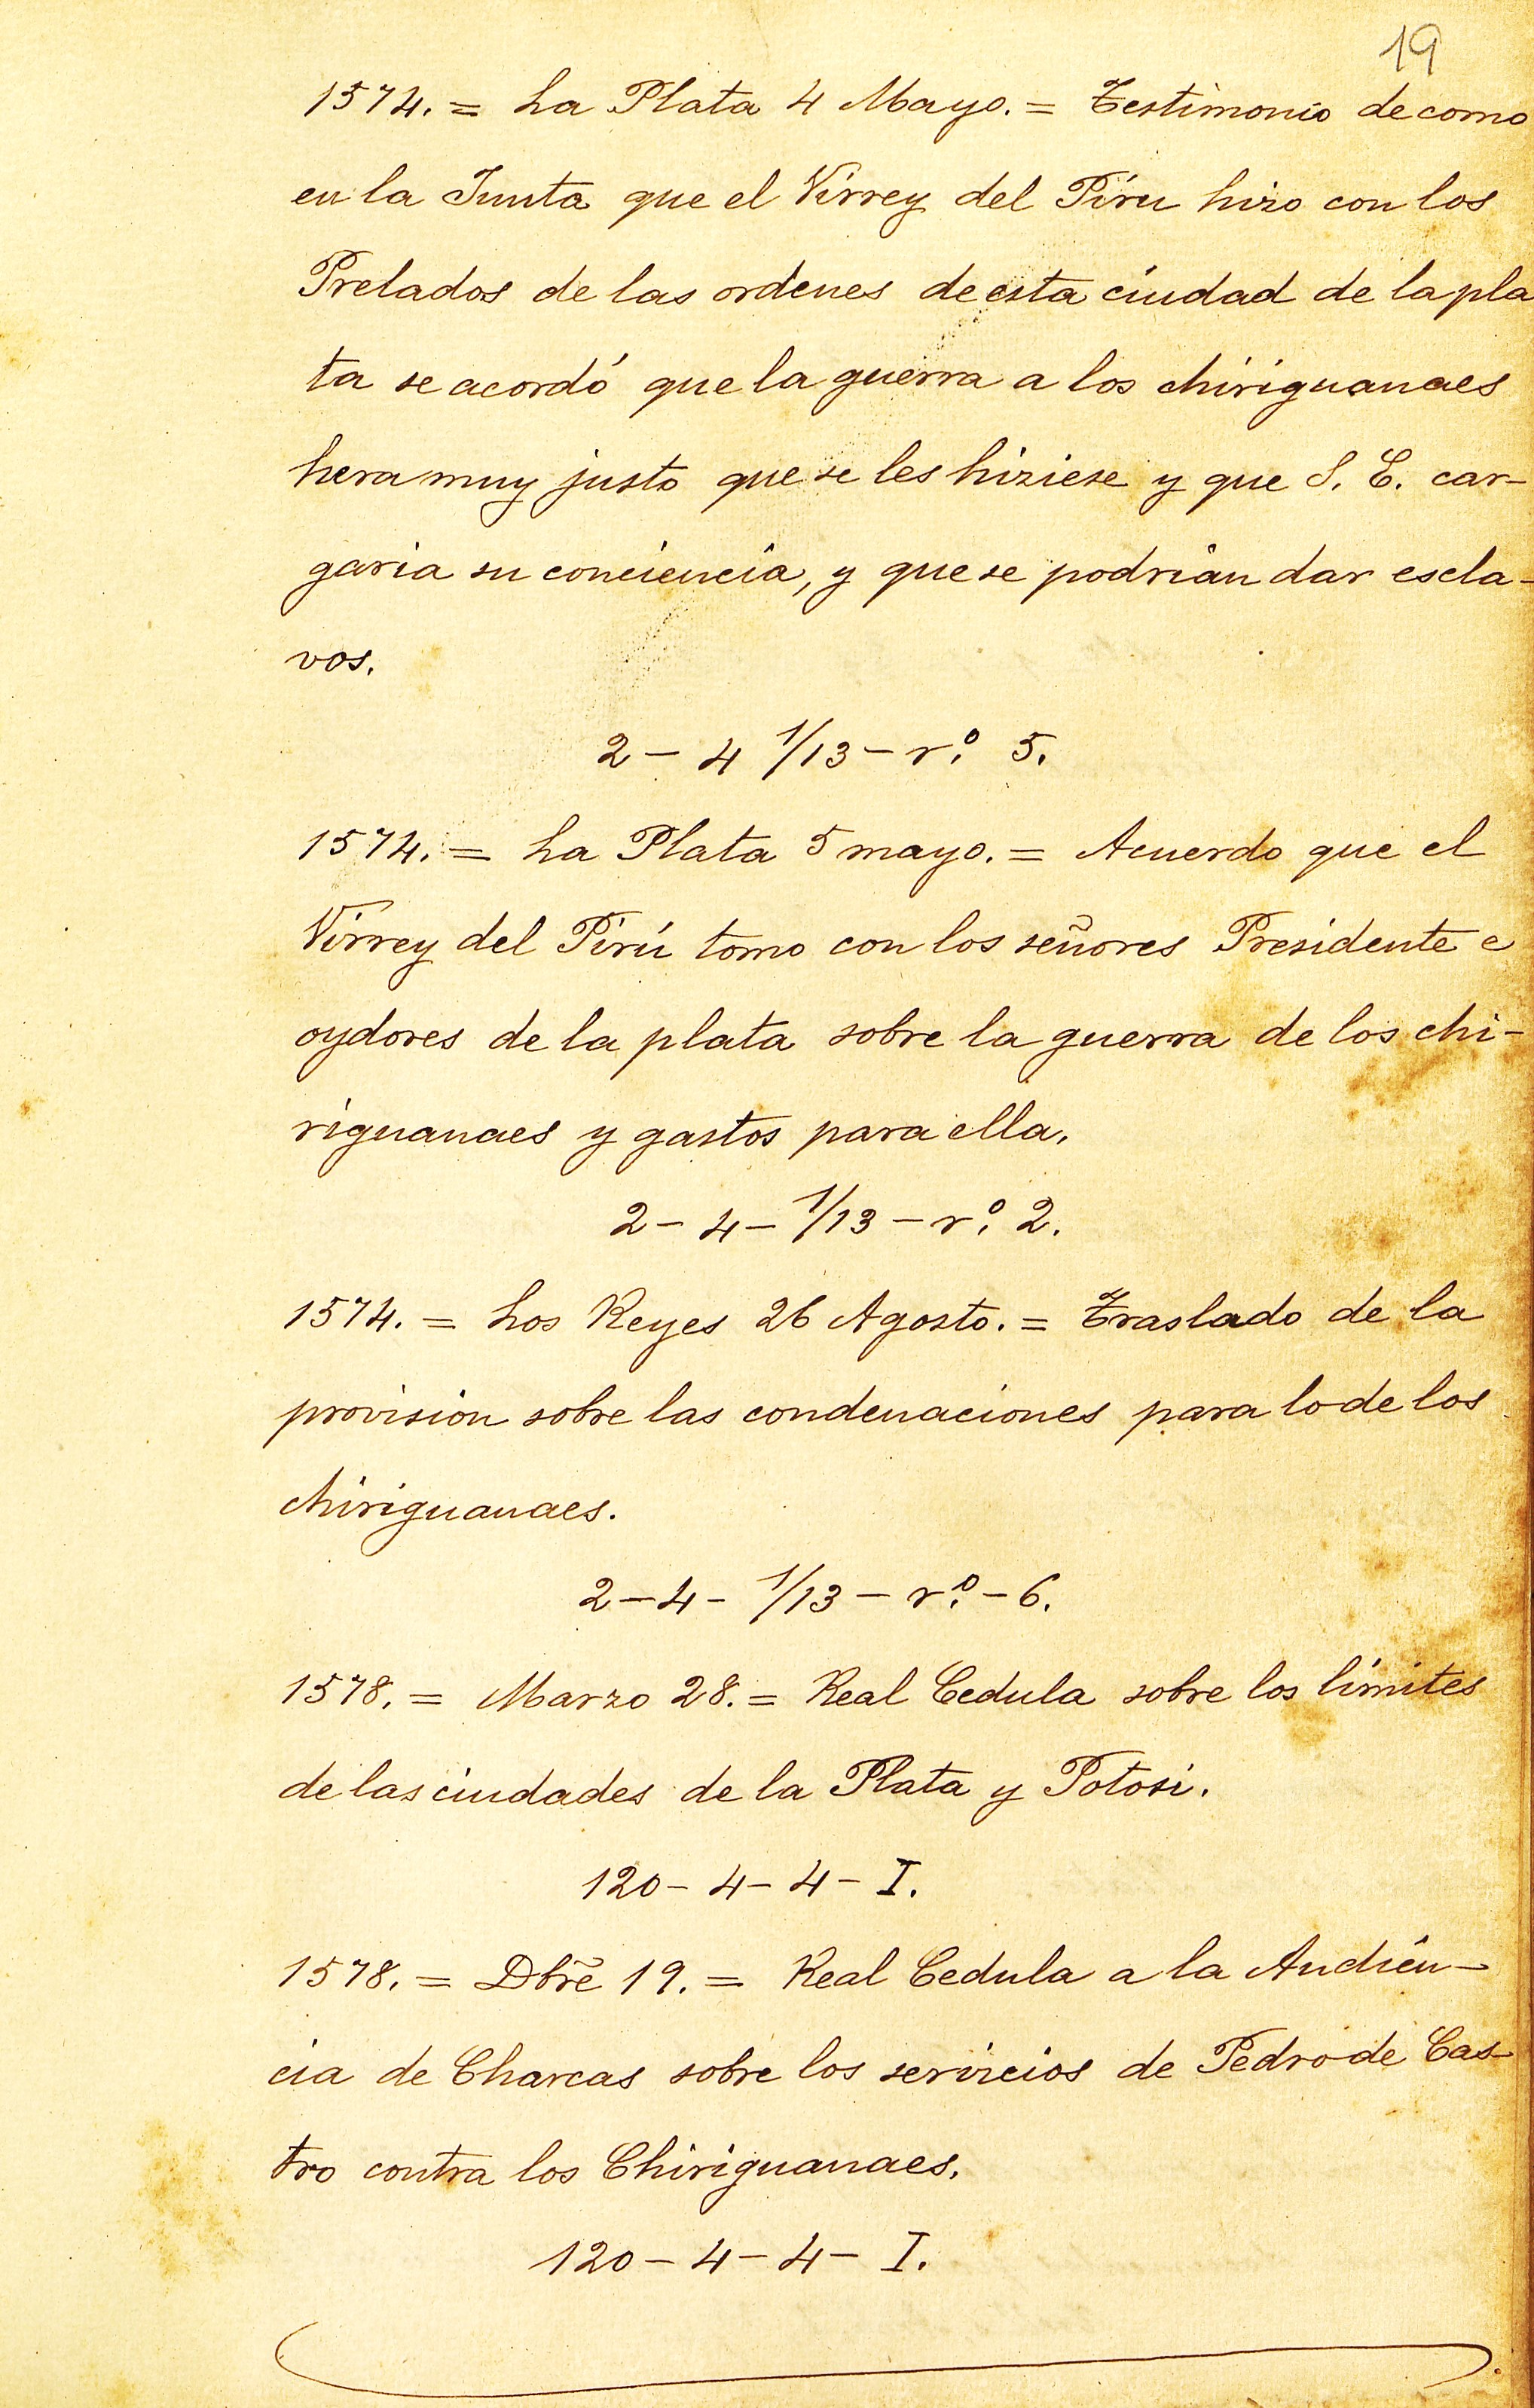 19
1574. = La Plata 4 Mayo. = Testimonio de como
en la Junta que el Virrey del Piru hizo con los
Prelados de las ordenes de esta ciudad de la pla
ta se acordó que la guerra a los chiriguanaes
hera muy justo que se les hiziese y que S. E. car-
garia su conciencia, y que se podrian dar escla-
vos.
2 - 4 1/13 - rº. 5.
1574. = La Plata 5 mayo. = Acuerdo que el
Virrey del Pirú tomo con los señores Presidente e
oydores de la plata sobre la guerra de los chi-
riguanaes y gastos para ella.
2 - 4 - 1/13 - rº. 2.
1574. = Los Reyes 26 Agosto. = Traslado de la
provision sobre las condenaciones para lo de los
chiriguanaes.
2 - 4 - 1/13 - rº. - 6.
1578. = Marzo 28. = Real Cedula sobre los límites
de las ciudades de la Plata y Potosi.
120 - 4 - 4 - I.
1578. = Dbr̃e 19. = Real Cedula a la Audien-
cia de Charcas sobre los servicios de Pedro de Cas-
tro contra los Chiriguanaes.
120 - 4 - 4 - I.